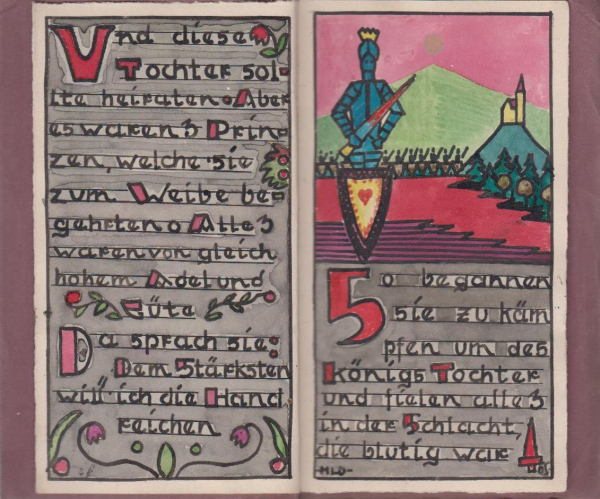 Und diese
Tochter sol-
lte heiraten. Aber
es waren 3 Prin-
zen, welche sie
zum Weibe be-
gehrten. Alle 3
waren von gleich
hohem Adel und
Güte
Da sprach sie:
Dem Stärksten
will ich die Hand
reichen
So begannen
sie zu käm
pfen um des
Königs Tochter
und fielen alle 3
in der Schlacht,
die blutig war
MLO-